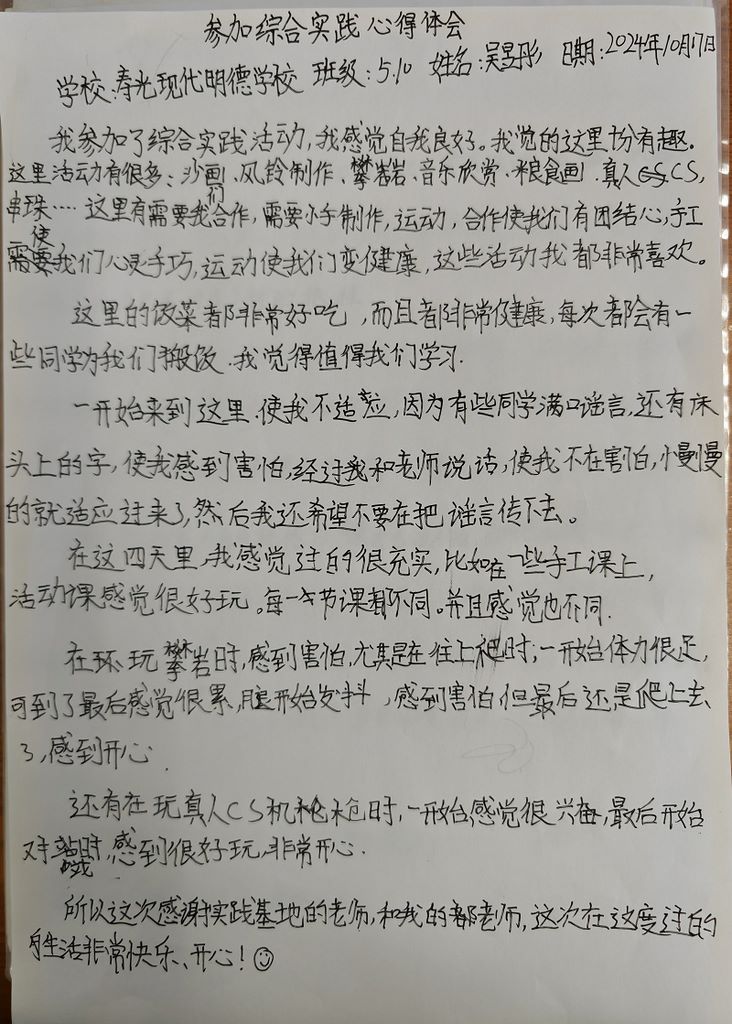 参加综合实践心得体会
学校:寿光现代明德学校 班级:5.10 姓名:吴昱彤 日期:2024年10月17日
我参加了综合实践活动,我感觉自我良好。我觉的这里十分有趣。
这里活动有很多:沙画、风铃制作、攀岩、音乐欣赏、粮食画、真人CS,
串珠…… 这里有需要我们合作,需要小手制作,运动,合作使我们有团结心,手工
使我们心灵手巧,运动使我们变健康,这些活动我都非常喜欢。
这里的饭菜都非常好吃,而且都非常健康,每次都会有一
些同学为我们搬饭.我觉得值得我们学习.
一开始来到这里.使我不适应,因为有些同学满口谣言,还有床
头上的字,使我感到害怕,经过我和老师说话,使我不在害怕,慢慢
的就适应过来了,然后我还希望不要在把谣言传下去。
在这四天里,我感觉过的很充实,比如在一些手工课上,
活动课感觉很好玩。每一节课都不同。并且感觉也不同.
在环玩攀岩时,感到害怕,尤其是在往上爬时,一开始体力很足,
可到了最后感觉很累,腿开始发抖,感到害怕但最后还是爬上去
了,感到开心.
还有在玩真人CS机枪时,一开始感觉很兴奋,最后开始
对战时,感到很好玩,非常开心.
所以这次感谢实践基地的老师,和我的都老师,这次在这度过的
生活非常快乐、开心!☺